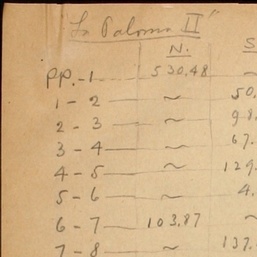 "La Paloma II"
N. S
PP. - 1 530.48 ~
1 - 2 ~ 50.
2 - 3 ~ 98.
3 - 4 ~ 67.
4 - 5 ~ 129.
5 - 6 ~ 4.
6 - 7 103.87 ~
7 - 8 ~ 137.